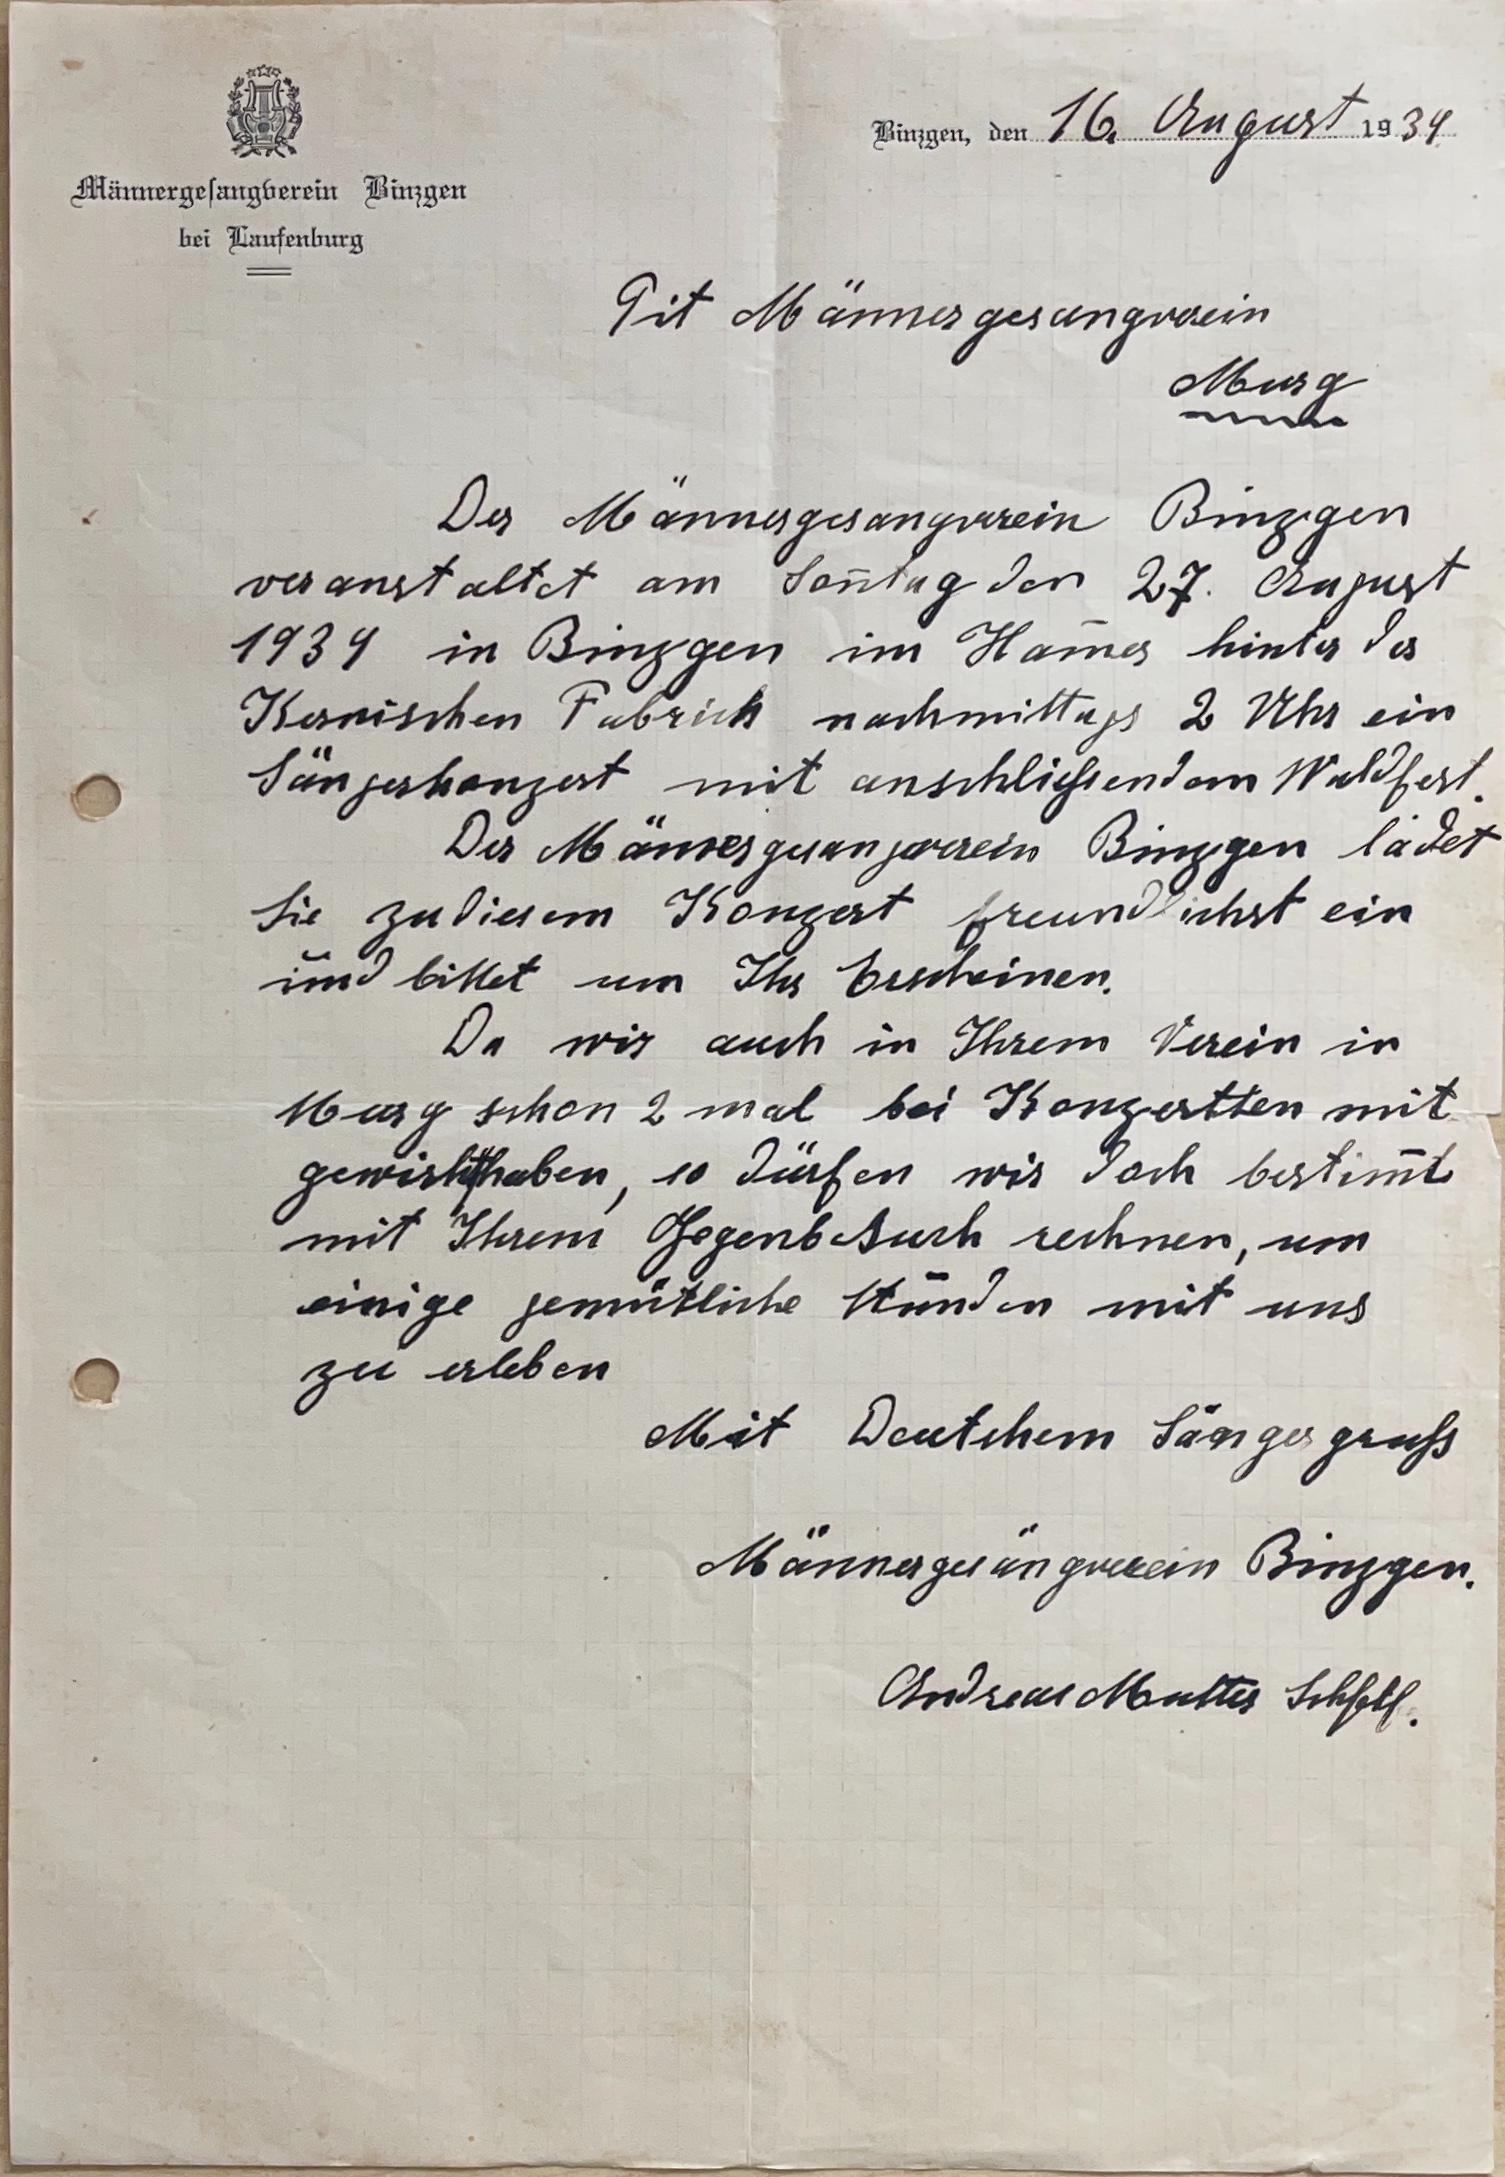 Männergesangverein Binzgen
bei Laufenburg
Binzgen, den 16. August 1939.
Tit Männergesangverein
Murg
Der Männergesangverein Binzgen
veranstaltet am Son̄tag den 27. August
1939 in Binzgen im Ham̄er hinter der
Kernischen Fabrick nachmittags 2 Uhr ein
Sängerkonzert mit anschließendem Waldfest.
Der Männergesangverein Binzgen ladet
Sie zu diesem Konzert freundlichst ein
und bittet um Ihr Erscheinen.
Da wir auch in Ihrem Verein in
Murg schon 2 mal bei Konzertten mit
gewirkt haben, so dürfen wir doch bestim̄t
mit Ihrem Gegenbesuch rechnen, um
einige gemütliche Stunden mit uns
zu erleben
Mit Deutschem Sängergruß
Männergesängverein Binzgen.
Andreas Mutter